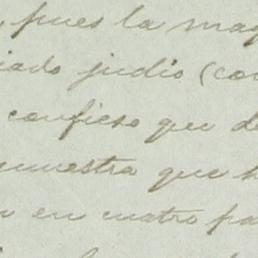 , pues la mag
iado judio (con
confieso que de
muestra que h
n en cuatro pa